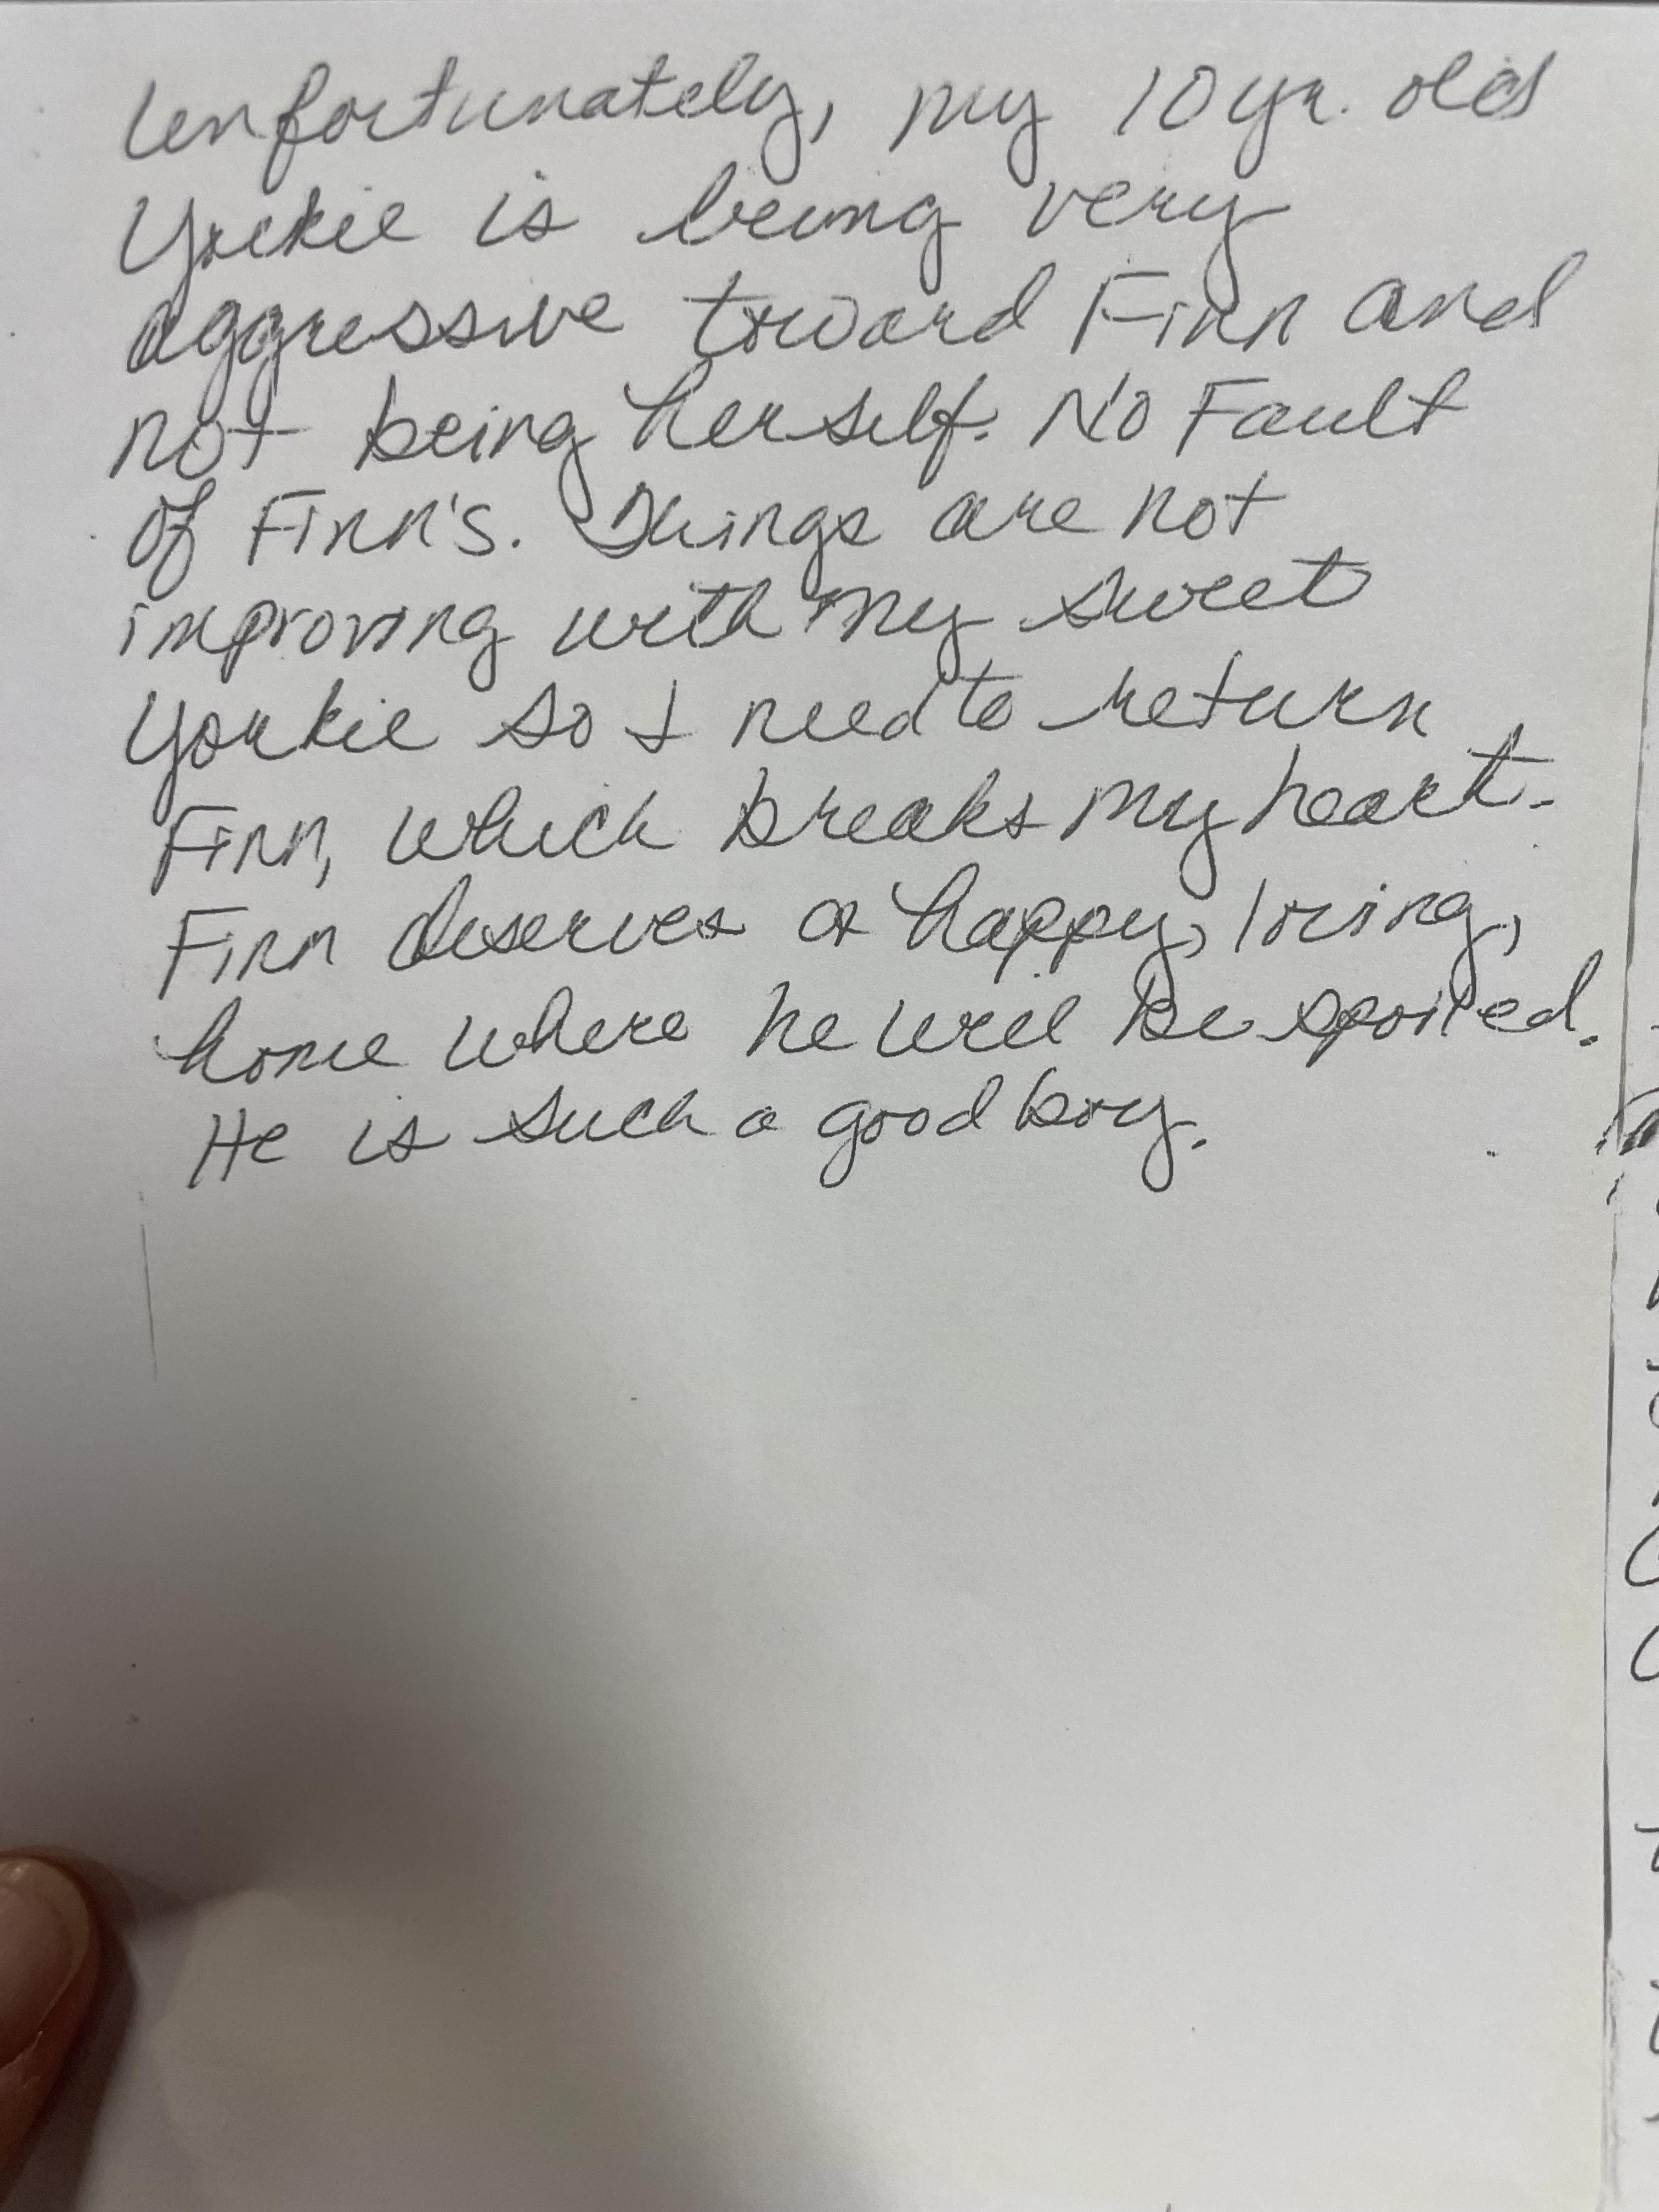 Unfortunately, my 10 yr. old
Yorkie is being very
aggressive toward Finn and
not being herself. No Fault
of Finn's. Things are not
improving with my sweet
Yorkie so I need to return
Finn, which breaks my heart.
Finn deserves a happy, loving,
home where he will be spoiled.
He is such a good boy.